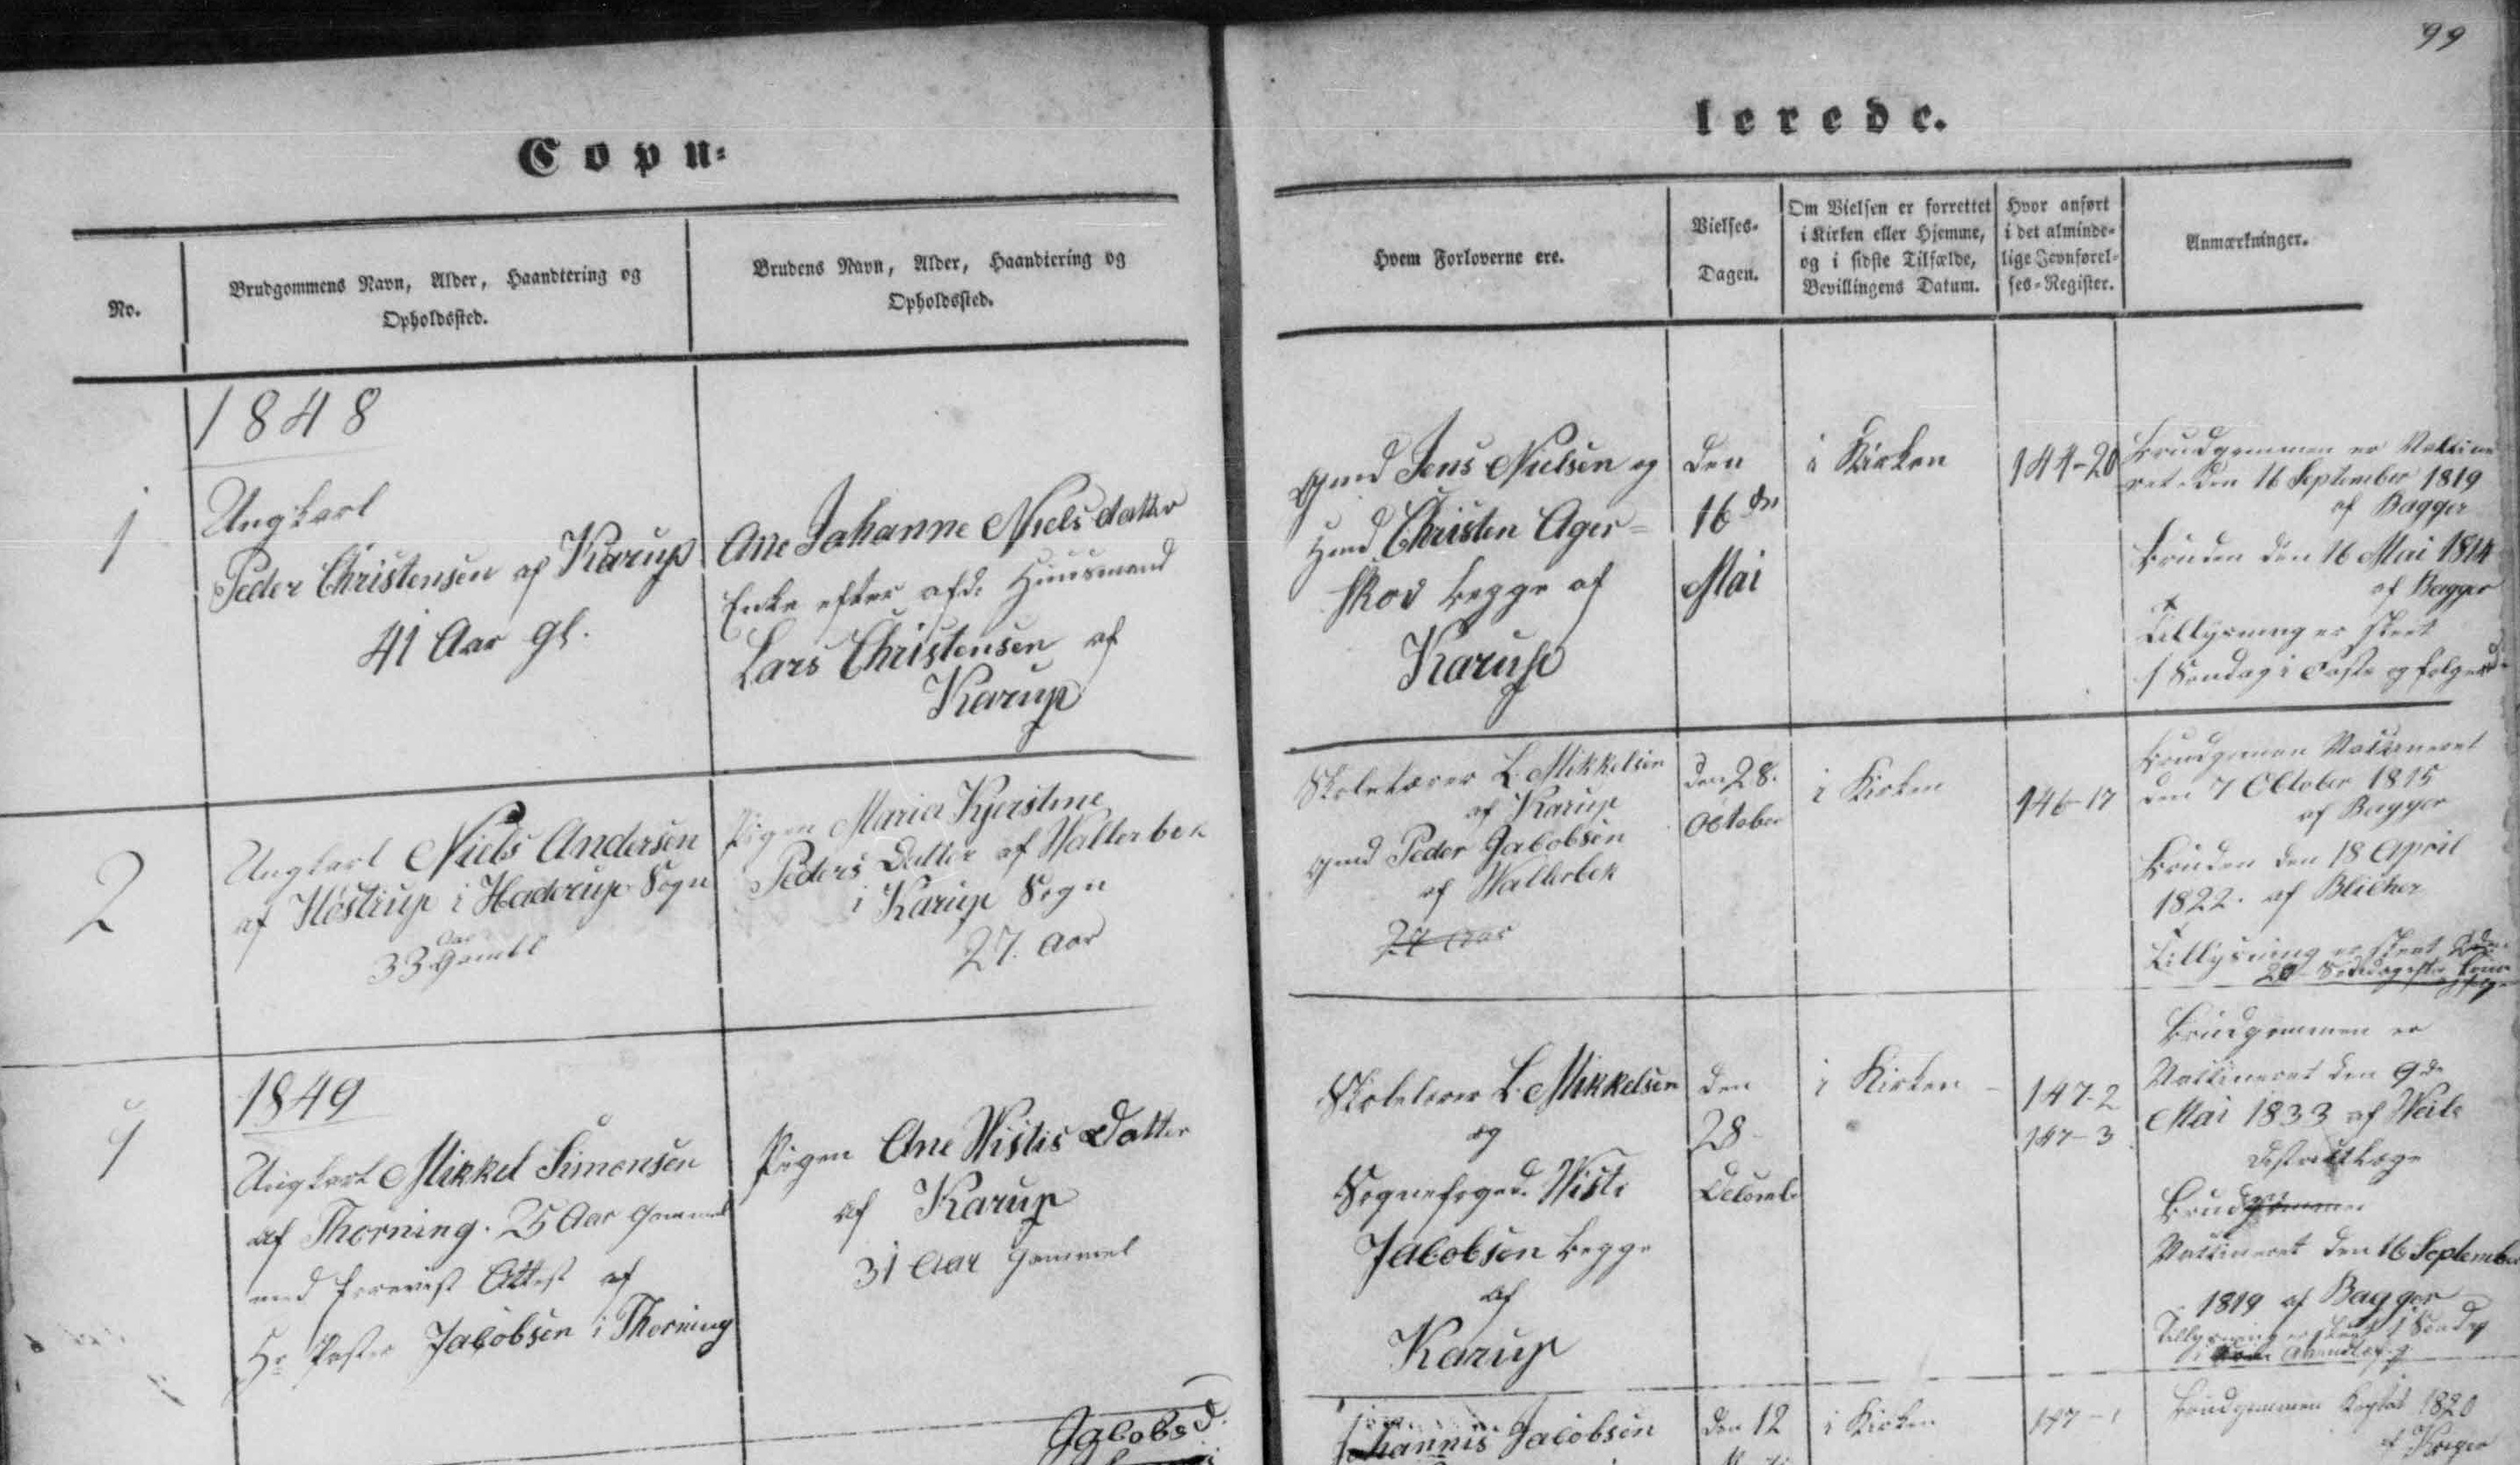 99
Copu=
lerede.
No.
Brudgommens Navn, Alder, Haandtering og
Opholdssted.
Brudens Navn, Alder, Haandtering og
Opholdssted.
Hvem Forloverne ere.
Vielses-
Dagen.
Om Vielsen er forrettet
i Kirken eller Hjemme,
og i sidste Tilfælde,
Bevillingens Datum.
Hvor anført
i det alminde-
lige Jevnførel-
ses-Register.
Anmærkninger.
1848
1
Ungkarl
Peder Christensen af Karup
41 Aar gl.
Ane Johanne Nielsdatter
Enke efter afd. Huusmand
Lars Christensen af
Karup
Gmd Jens Nielsen og
Hmd Christen Ager=
skov begge af
Karup
den
16 de
Mai
i Kirken
144-20
Brudgommen er Vaccine
ret den 16 September 1819
af Bagger
Bruden den 16 Mai 1814
af Bagger
Tillysning er skeet
1 Søndag i Faste og følgend
2
Ungkarl Niels Andersen
af Høstrup i Haderup Sogn
33 Aar Gamel
Pigen Maria Kjerstine
Peders Datter af Wallerbek
i Karup Sogn
27. Aar
Skolelærer L. Mikkelsen
af Karup
gmd Peder Jacobsen
af Wallerbek
27 Aar
den 28.
October
i Kirken
146-17
Brudgommen Vaccineret
den 7 October 1815
af Bagger
Bruden den 18 April
1822. af Blicher
Tillysning er skeet
1849
1
Ungkarl Mikkel Simonsen
af Thorning. 25 Aar Gammel
med foreviist Attest af
Hr Pastor Jacobsen i Thorning
Pigen Ane Wistis Datter
af Karup
31 Aar Gammel
Skolelærer L. Mikkelsen
og
Sognefoged. Wisti
Jacobsen begge
af
Karup
den
28
Decemb
i Kirken
147-2
147-3
Brudgommen er
Vaccineret den 9de
Mai 1833 af Weile
Destrictlæge
Bruden
Vaccineret den 16 September
1819 af Bagger
Tillysning er skeet 1 Søndag
i Advent
Jacobsd.
Johannis Jacobsen
den 12
i Kirken
147-1
Brudgommen 1820
af Krøyer